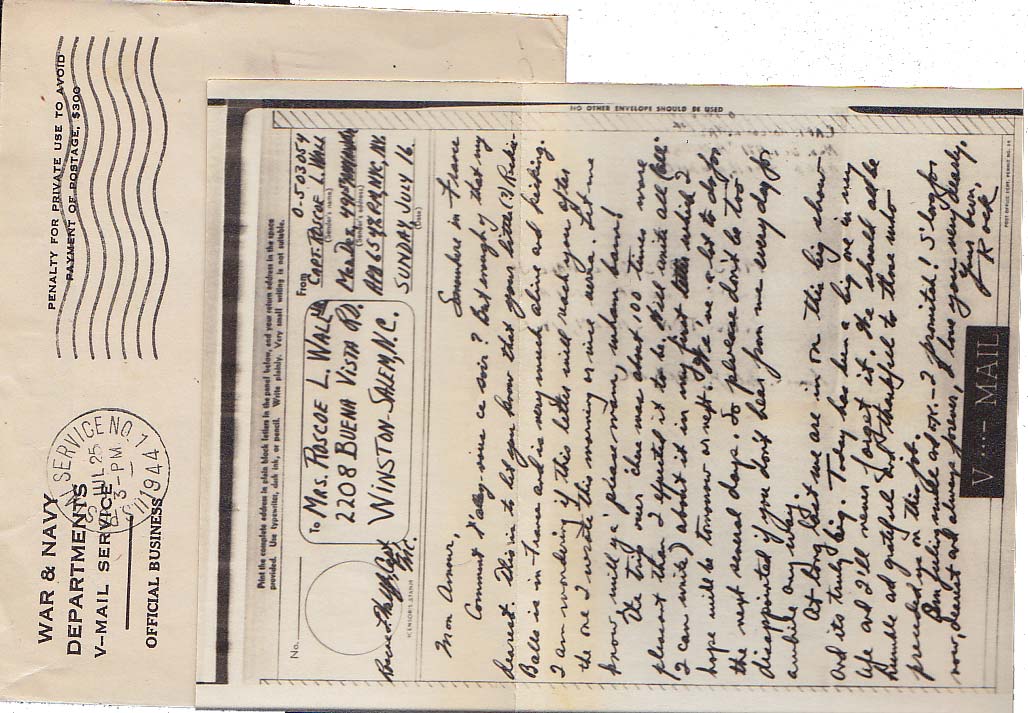 WAR & NAVY
DEPARTMENTS
V-MAIL SERVICE
OFFICIAL BUSINESS
PENALTY FOR PRIVATE USE TO AVOID
PAYMENT OF POSTAGE, $300
SERVICE NO. 1
JUL 25
3-PM
1944
Print the complete address in plain block letters in the panel below, and your return address in the space
provided. Use typewriter, dark ink, or pencil. Write plainly. Very small writing is not suitable.
No.
CENSOR'S STAMP
To MRS. ROSCOE L. WALL
2208 BUENA VISTA RD.
WINSTON-SALEM, N.C.
From
CAPT. ROSCOE L. WALL 0-503054
(Sender's name)
(Sender's address)
NYC, NY.
SUNDAY JULY 16
(Date)
Somewhere in France
Mon Amour,
Comment allez-vous ce soir? But enough of that my
dearest. This is to let you know that your
is in France and is very much alive and kicking.
I am wondering if this letter will reach you after
the one I wrote this morning or vice versa. Let me
know will ya' please mam, unham ham!
The trip over here was about 100 times more
pleasant than I expected it to be. Will write all (all
I can write) about it in my first letter which I
hope will be tomorrow or next. I have a lot to do for
the next several days. So please don't be too
disappointed if you don't hear from me every day for
awhile anyway.
At long last we are in on the big show
and its truly big. Today has been a big one in my
life and I'll never forget it. We should all be
humble and grateful and thankful to those who
preceded us on this job.
Am feeling swell and OK - I promise! S'long for
now, dearest and always forever, I love you very dearly.
Your own,
Rock
V···— MAIL
NO OTHER ENVELOPE SHOULD BE USED